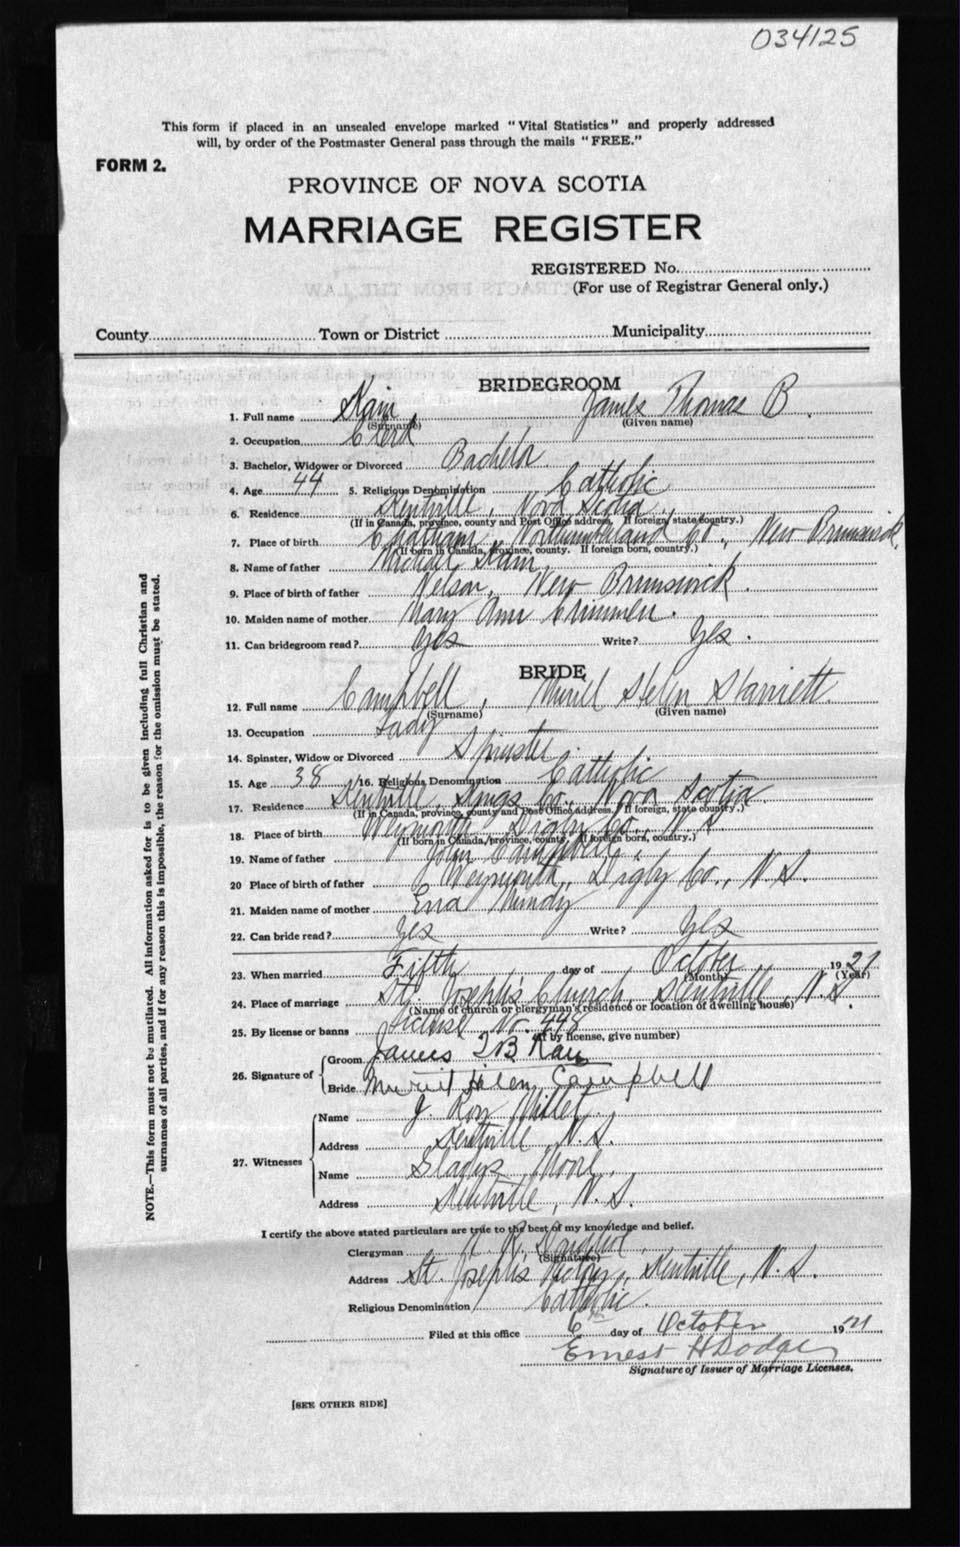 034125
This form if placed in an unsealed envelope marked "Vital Statistics" and properly addressed
will, by order of the Postmaster General pass through the mails "FREE."
FORM 2.
PROVINCE OF NOVA SCOTIA
MARRIAGE REGISTER
REGISTERED No.
(For use of Registrar General only.)
County Town or District Municipality
BRIDEGROOM
1. Full name Kain, James Thomas B.
(Surname) (Given name)
2. Occupation Clerk
3. Bachelor, Widower or Divorced Bachelor
4. Age 44 5. Religious Denomination Catholic
6. Residence Kentville, Nova Scotia
(If in Canada, province, county and Post Office address. If foreign, state country.)
7. Place of birth Chatham, Northumberland Co., New Brunswick.
(If born in Canada, province, county. If foreign born, country.)
8. Name of father Michael Kain
9. Place of birth of father Nelson, New Brunswick.
10. Maiden name of mother Mary Ann Crimmen.
11. Can bridegroom read? Yes Write? Yes.
BRIDE
12. Full name Campbell, Muriel Helen Harriett
(Surname) (Given name)
13. Occupation Lady
14. Spinster, Widow or Divorced Spinster
15. Age 38 16. Religious Denomination Catholic
17. Residence Kentville, Kings Co., Nova Scotia
(If in Canada, province, county and Post Office address. If foreign, state country.)
18. Place of birth Weymouth, Digby Co., N.S.
(If born in Canada, province, county. If foreign born, country.)
19. Name of father John Campbell.
20 Place of birth of father Weymouth, Digby Co., N.S.
21. Maiden name of mother Mundy
22. Can bride read? Yes Write? Yes
23. When married Fifth day of October 1921
(Month) (Year)
24. Place of marriage St. Joseph's Church, Kentville, N.S.
(Name of church or clergyman's residence or location of dwelling house)
25. By license or banns License No. 448
(If by license, give number)
26. Signature of
Groom James T B Kain
Bride Muriel Helen Campbell
27. Witnesses
Name J. Ron Millet,
Address Kentville, N.S.
Name Gladys Moore,
Address Kentville, N.S.
I certify the above stated particulars are true to the best of my knowledge and belief.
Clergyman
(Signature)
Address St. Joseph's Rectory, Kentville, N.S.
Religious Denomination Catholic.
Filed at this office 6th day of October 1921
Ernest H Dodge
Signature of Issuer of Marriage Licenses.
[SEE OTHER SIDE]
NOTE.—This form must not be mutilated. All information asked for is to be given including full Christian and
surnames of all parties, and if for any reason this is impossible, the reason for the omission must be stated.